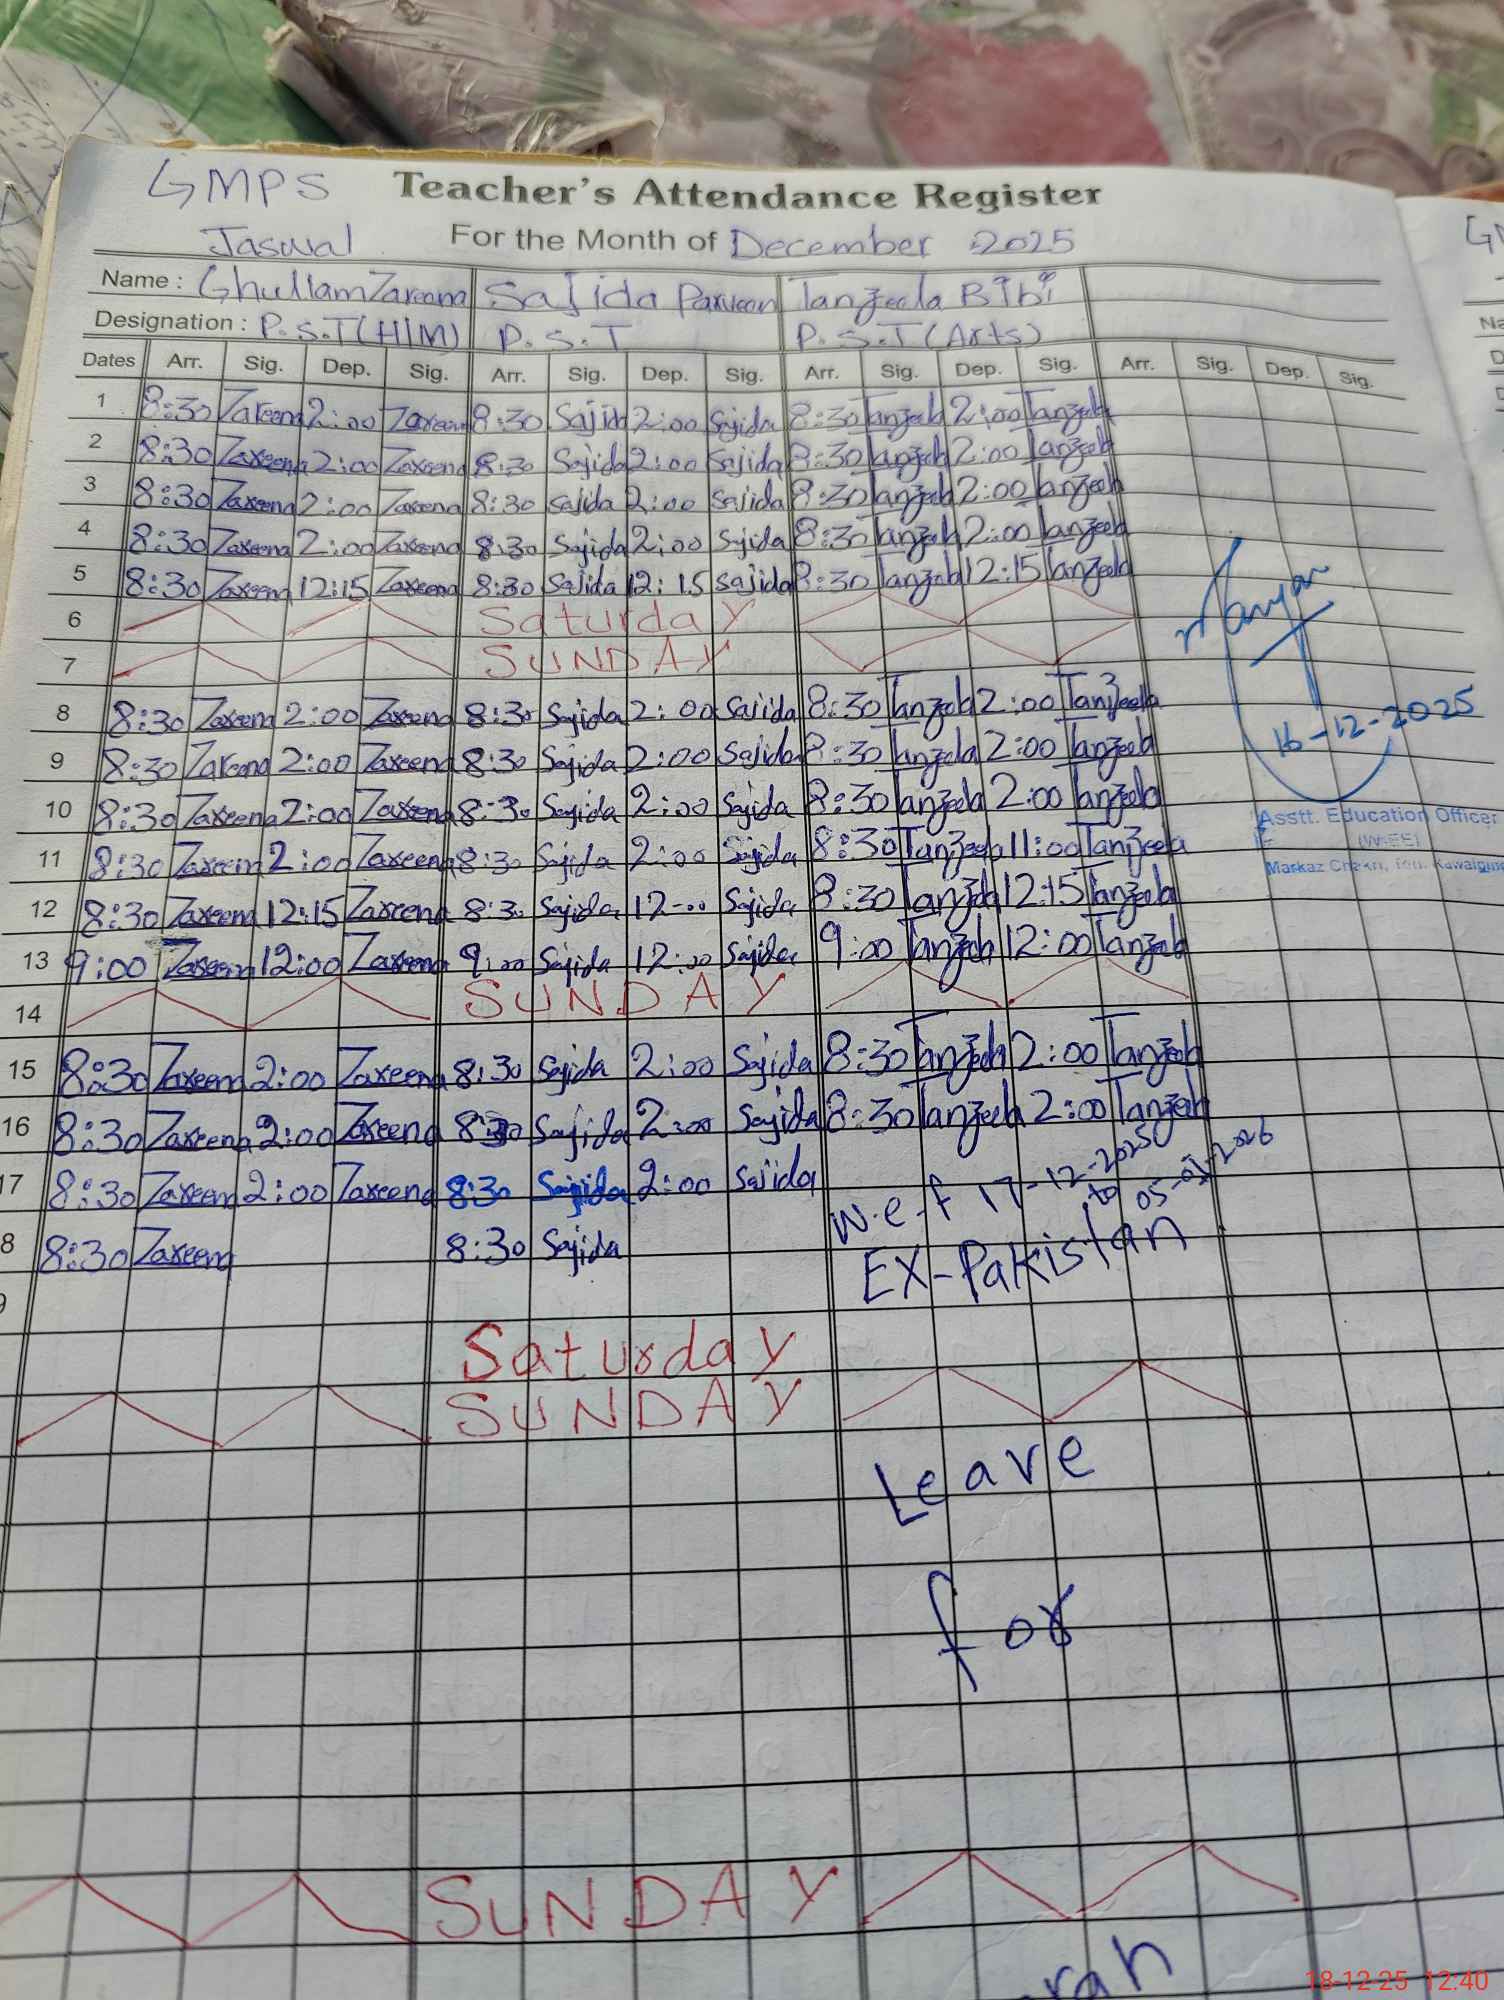 GMPS Teacher's Attendance Register
Jaswal For the Month of December 2025
Name : Ghullam Zareena Sajida Parveen Tanzeela Bibi
Designation : P.S.T(H/M) P.S.T P.S.T (Arts)
Dates Arr. Sig. Dep. Sig. Arr. Sig. Dep. Sig. Arr. Sig. Dep. Sig. Arr. Sig. Dep. Sig.
1 8:30 Zareena 2:00 Zareena 8:30 Sajida 2:00 Sajida 8:30 Tanzeela 2:00 Tanzeela
2 8:30 Zareena 2:00 Zareena 8:30 Sajida 2:00 Sajida 8:30 Tanzeela 2:00 Tanzeela
3 8:30 Zareena 2:00 Zareena 8:30 Sajida 2:00 Sajida 8:30 Tanzeela 2:00 Tanzeela
4 8:30 Zareena 2:00 Zareena 8:30 Sajida 2:00 Sajida 8:30 Tanzeela 2:00 Tanzeela
5 8:30 Zareena 12:15 Zareena 8:30 Sajida 12:15 Sajida 8:30 Tanzeela 12:15 Tanzeela
6 Saturday
7 SUNDAY
8 8:30 Zareena 2:00 Zareena 8:30 Sajida 2:00 Sajida 8:30 Tanzeela 2:00 Tanzeela
16-12-2025
9 8:30 Zareena 2:00 Zareena 8:30 Sajida 2:00 Sajida 8:30 Tanzeela 2:00 Tanzeela
10 8:30 Zareena 2:00 Zareena 8:30 Sajida 2:00 Sajida 8:30 Tanzeela 2:00 Tanzeela
Asstt. Education Officer
(W-EE)
Markaz
11 8:30 Zareena 2:00 Zareena 8:30 Sajida 2:00 Sajida 8:30 Tanzeela 11:00 Tanzeela
12 8:30 Zareena 12:15 Zareena 8:30 Sajida 12-00 Sajida 8:30 Tanzeela 12:15 Tanzeela
13 9:00 Zareena 12:00 Zareena 9:00 Sajida 12:00 Sajida 9:00 Tanzeela 12:00 Tanzeela
14 SUNDAY
15 8:30 Zareena 2:00 Zareena 8:30 Sajida 2:00 Sajida 8:30 Tanzeela 2:00 Tanzeela
16 8:30 Zareena 2:00 Zareena 8:30 Sajida 2:00 Sajida 8:30 Tanzeela 2:00 Tanzeela
17 8:30 Zareena 2:00 Zareena 8:30 Sajida 2:00 Sajida W.e.f 17-12-2025 to 05-01-2026
8 8:30 Zareena 8:30 Sajida EX-Pakistan
9
Saturday
SUNDAY
Leave
for
SUNDAY
rah
18-12-25 12:40